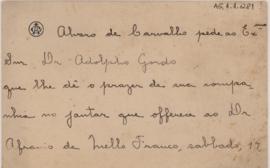 Alvaro de Carvalho pede ao Ex.mo
Snr Dr Adolpho Gordo
que lhe dê o prazer de sua compa
nhia no jantar que offerece ao Dr
Afranio de Mello Franco, sabbado, 17